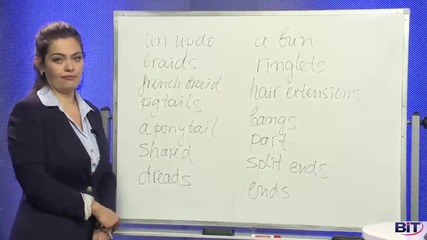 un updo
braids
french braid
pigtails
a ponytail
Shaved
dreads
a bun
ringlets
hair extensions
bangs
part
split ends
ends
BiT